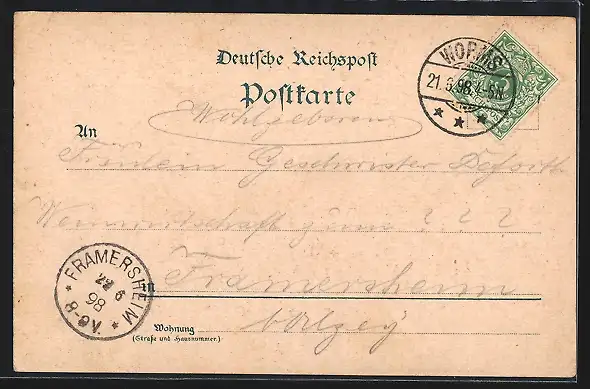 Deutsche Reichspost
Postkarte
WORMS
21.6.98.4-5N.
Wohlgeboren
An
Fräulein Geschwister
Weinwirtschaft zum ? ? ?
FRAMERSHEIM
22 6
98
8-9V.
in Framersheim
Wohnung
b/Alzey
(Straße und Hausnummer.)